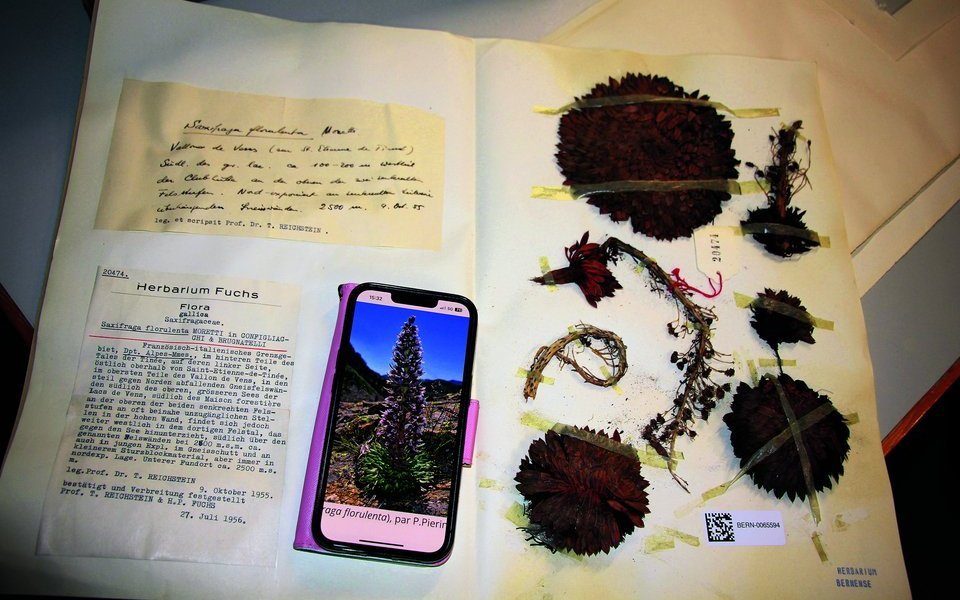 Saxifraga florulenta Moretti
Vallon de Vens (sur St. Etienne de Tinée)
Südl. des gr. lac. ca 100-200 m westlich
der Clubhütte an der oberen der zwei senkrechten
Felsstufen. Nord exponiert an senkrechten
überhängenden Gneiswänden. 2500 m. 9. Oct. 55
leg. et scripsit Prof. Dr. T. REICHSTEIN.
20474.
Herbarium Fuchs
Flora
gallica
Saxifragaceae.
Saxifraga florulenta MORETTI in CONFIGLIAC-
CHI & BRUGNATELLI
Französisch-italienisches Grenzge-
biet, Dpt. Alpes-Mmes., im hinteren Teile des
Tales der Tinée, auf deren linker Seite,
östlich oberhalb von Saint-Etienne-de-Tinée,
im obersten Teile des Vallon de Vens, in den
steil gegen Norden abfallenden Gneisfelswän-
den südlich des oberen, grösseren Sees der
Lacs de Vens, südlich des Maison forestière
an der oberen der beiden senkrechten Fels-
stufen an oft beinahe unzugänglichen Stel-
len in der hohen Wand, findet sich jedoch
weiter westlich in dem dortigen Felstal, das
gegen den See hinunterzieht, südlich über den
genannten Felswänden bei 2600 m.s.m. ca.
auch in jungen Expl. im Gneisschutt und an
kleinerem Sturzblockmaterial, aber immer in
nordexp. Lage. Unterer Fundort ca. 2500 m.s.
m.
leg. Prof. Dr. T. REICHSTEIN
9. Oktober 1955.
bestätigt und Verbreitung festgestellt
Prof. T. REICHSTEIN & H.P. FUCHS
27. Juli 1956.
15:32
raga florulenta), par P.Pierin
20474
BERN-0065594
HERBARIUM
BERNENSE